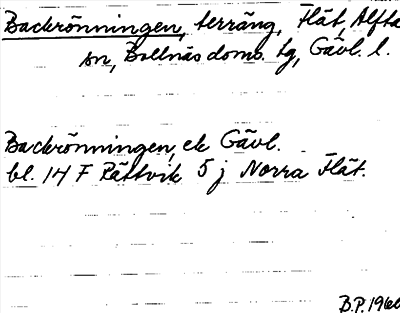 Backrönningen, terräng, Flät, Alfta
sn, Bollnäs doms. tg, Gävl. l.
Backrönningen, ek Gävl.
bl. 14 F Rättvik 5 j Norra Flät.
B.P. 1960